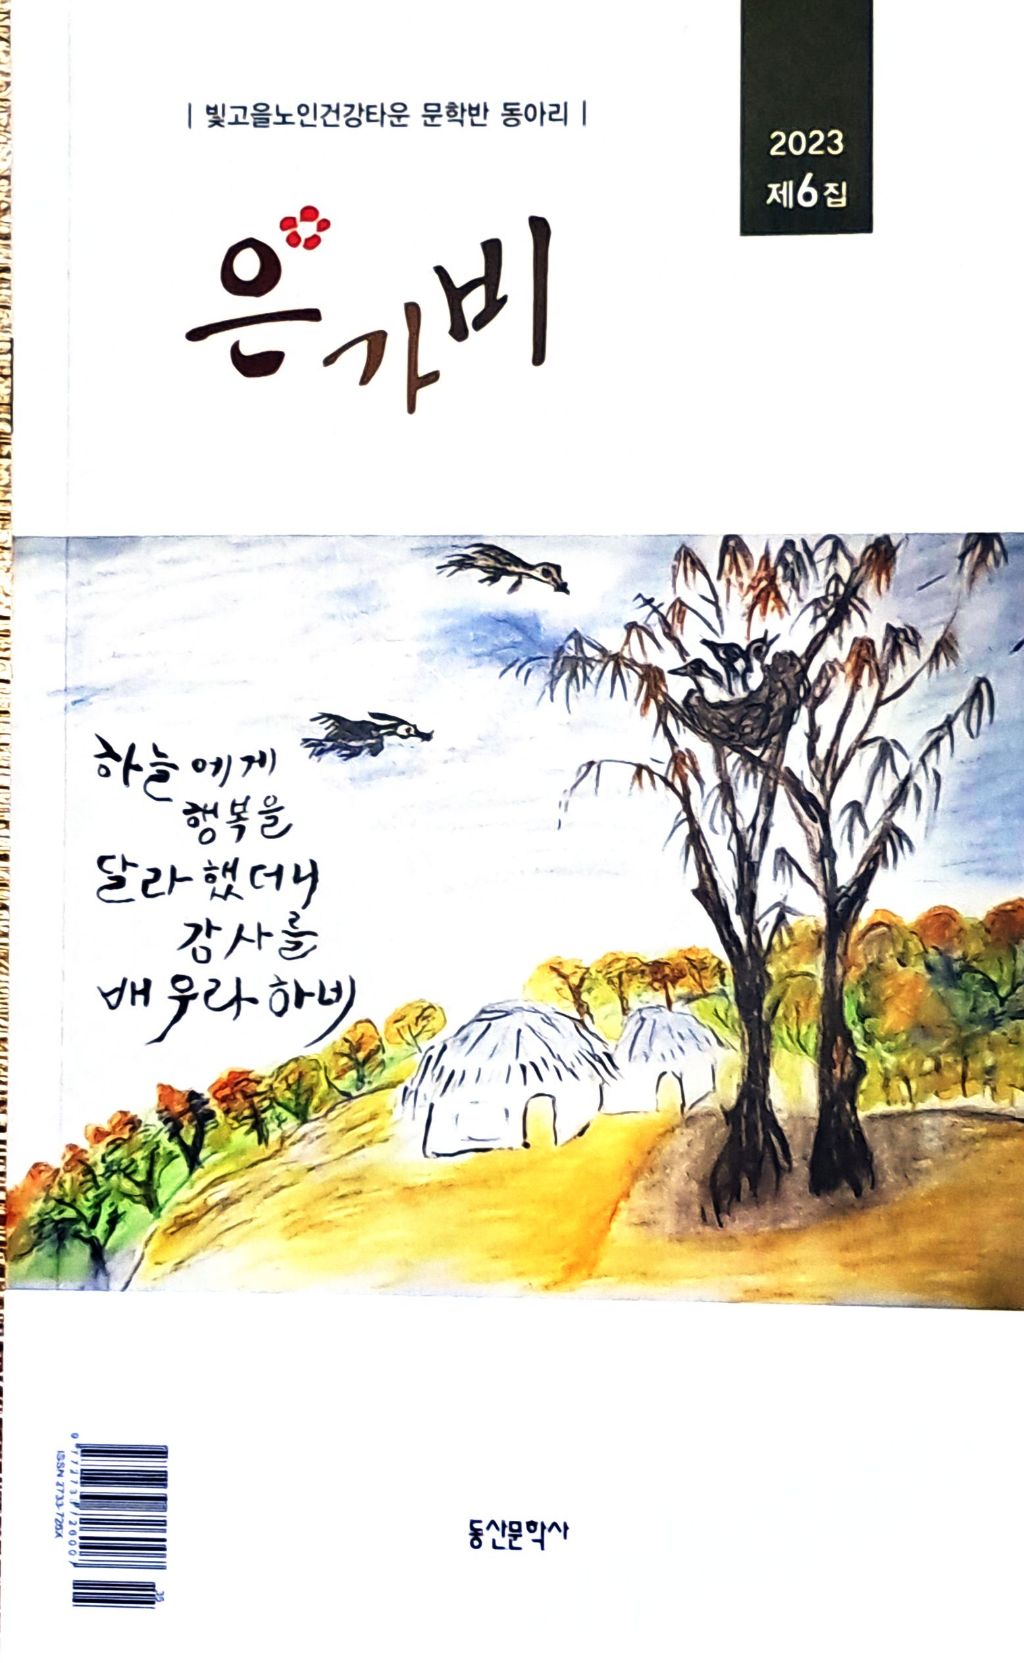 | 빛고을노인건강타운 문학반 동아리 |
2023
제6집
은가비
하늘에게
행복을
달라했더니
감사를
배우라하네
동산문학사
ISSN 2733-726X